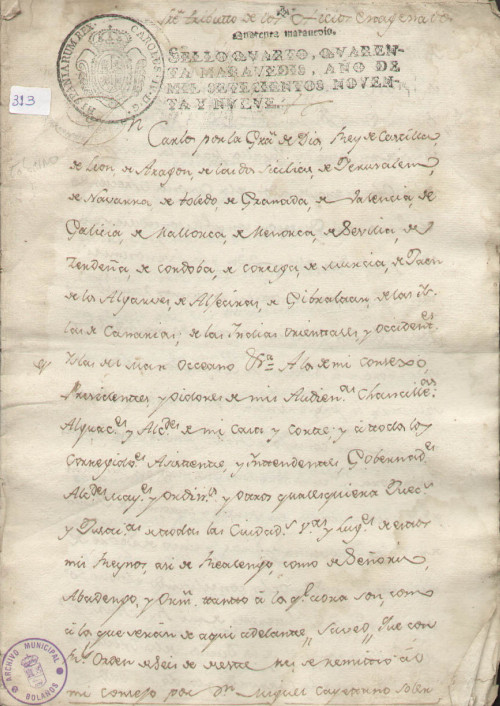 Quarenta maravedis.
SELLO QVARTO, QVAREN-
TA MARAVEDIS, AÑO DE
MIL SETECIENTOS NOVEN-
TA Y NVEVE.
CAROLUS IV. D. G.
HISPANIARUM REX
313
Dn. Carlos por la Grã. de Dios Rey de Castilla,
de Leon de Aragon, de las dos Sicilias, de Jerusalem,
de Navarra de Toledo, de Granada, de Valencia, de
Galicia, de Mallorca, de Menorca, de Sevilla, de
Zerdeña, de Cordoba, de Corcega, de Murcia, de Jaen
de los Algarves, de Algeciras, de Gibraltar, de las Is-
las de Canarias, de las Indias orientales y occident.es
Islas del Mar Occeano &ra. A los de mi consexo,
Presidentes y oidores de mis Audien.as Chanciller.as
Alguac.es y Alc.des de mi casa y corte, y á todos los
Corregido.s Asistente, y Intendentes, Gobernad.es
Alc.des may.es y ordin.s y otros qualesquiera Juec.s
y Justici.as de todas las Ciudad.s V.as y Lug.s de estos
mis Reynos, asi de Realengo, como de Señorio,
Abadengo, y Orn. tanto á los q.e aora son, como
á los que serán de aqui adelante, Saved, Que con
Rl. Orden de seis de este mes se remitió al
mi consejo por Dn. Miguel Cayetano Soler
ARCHIVO MUNICIPAL
BOLAÑOS